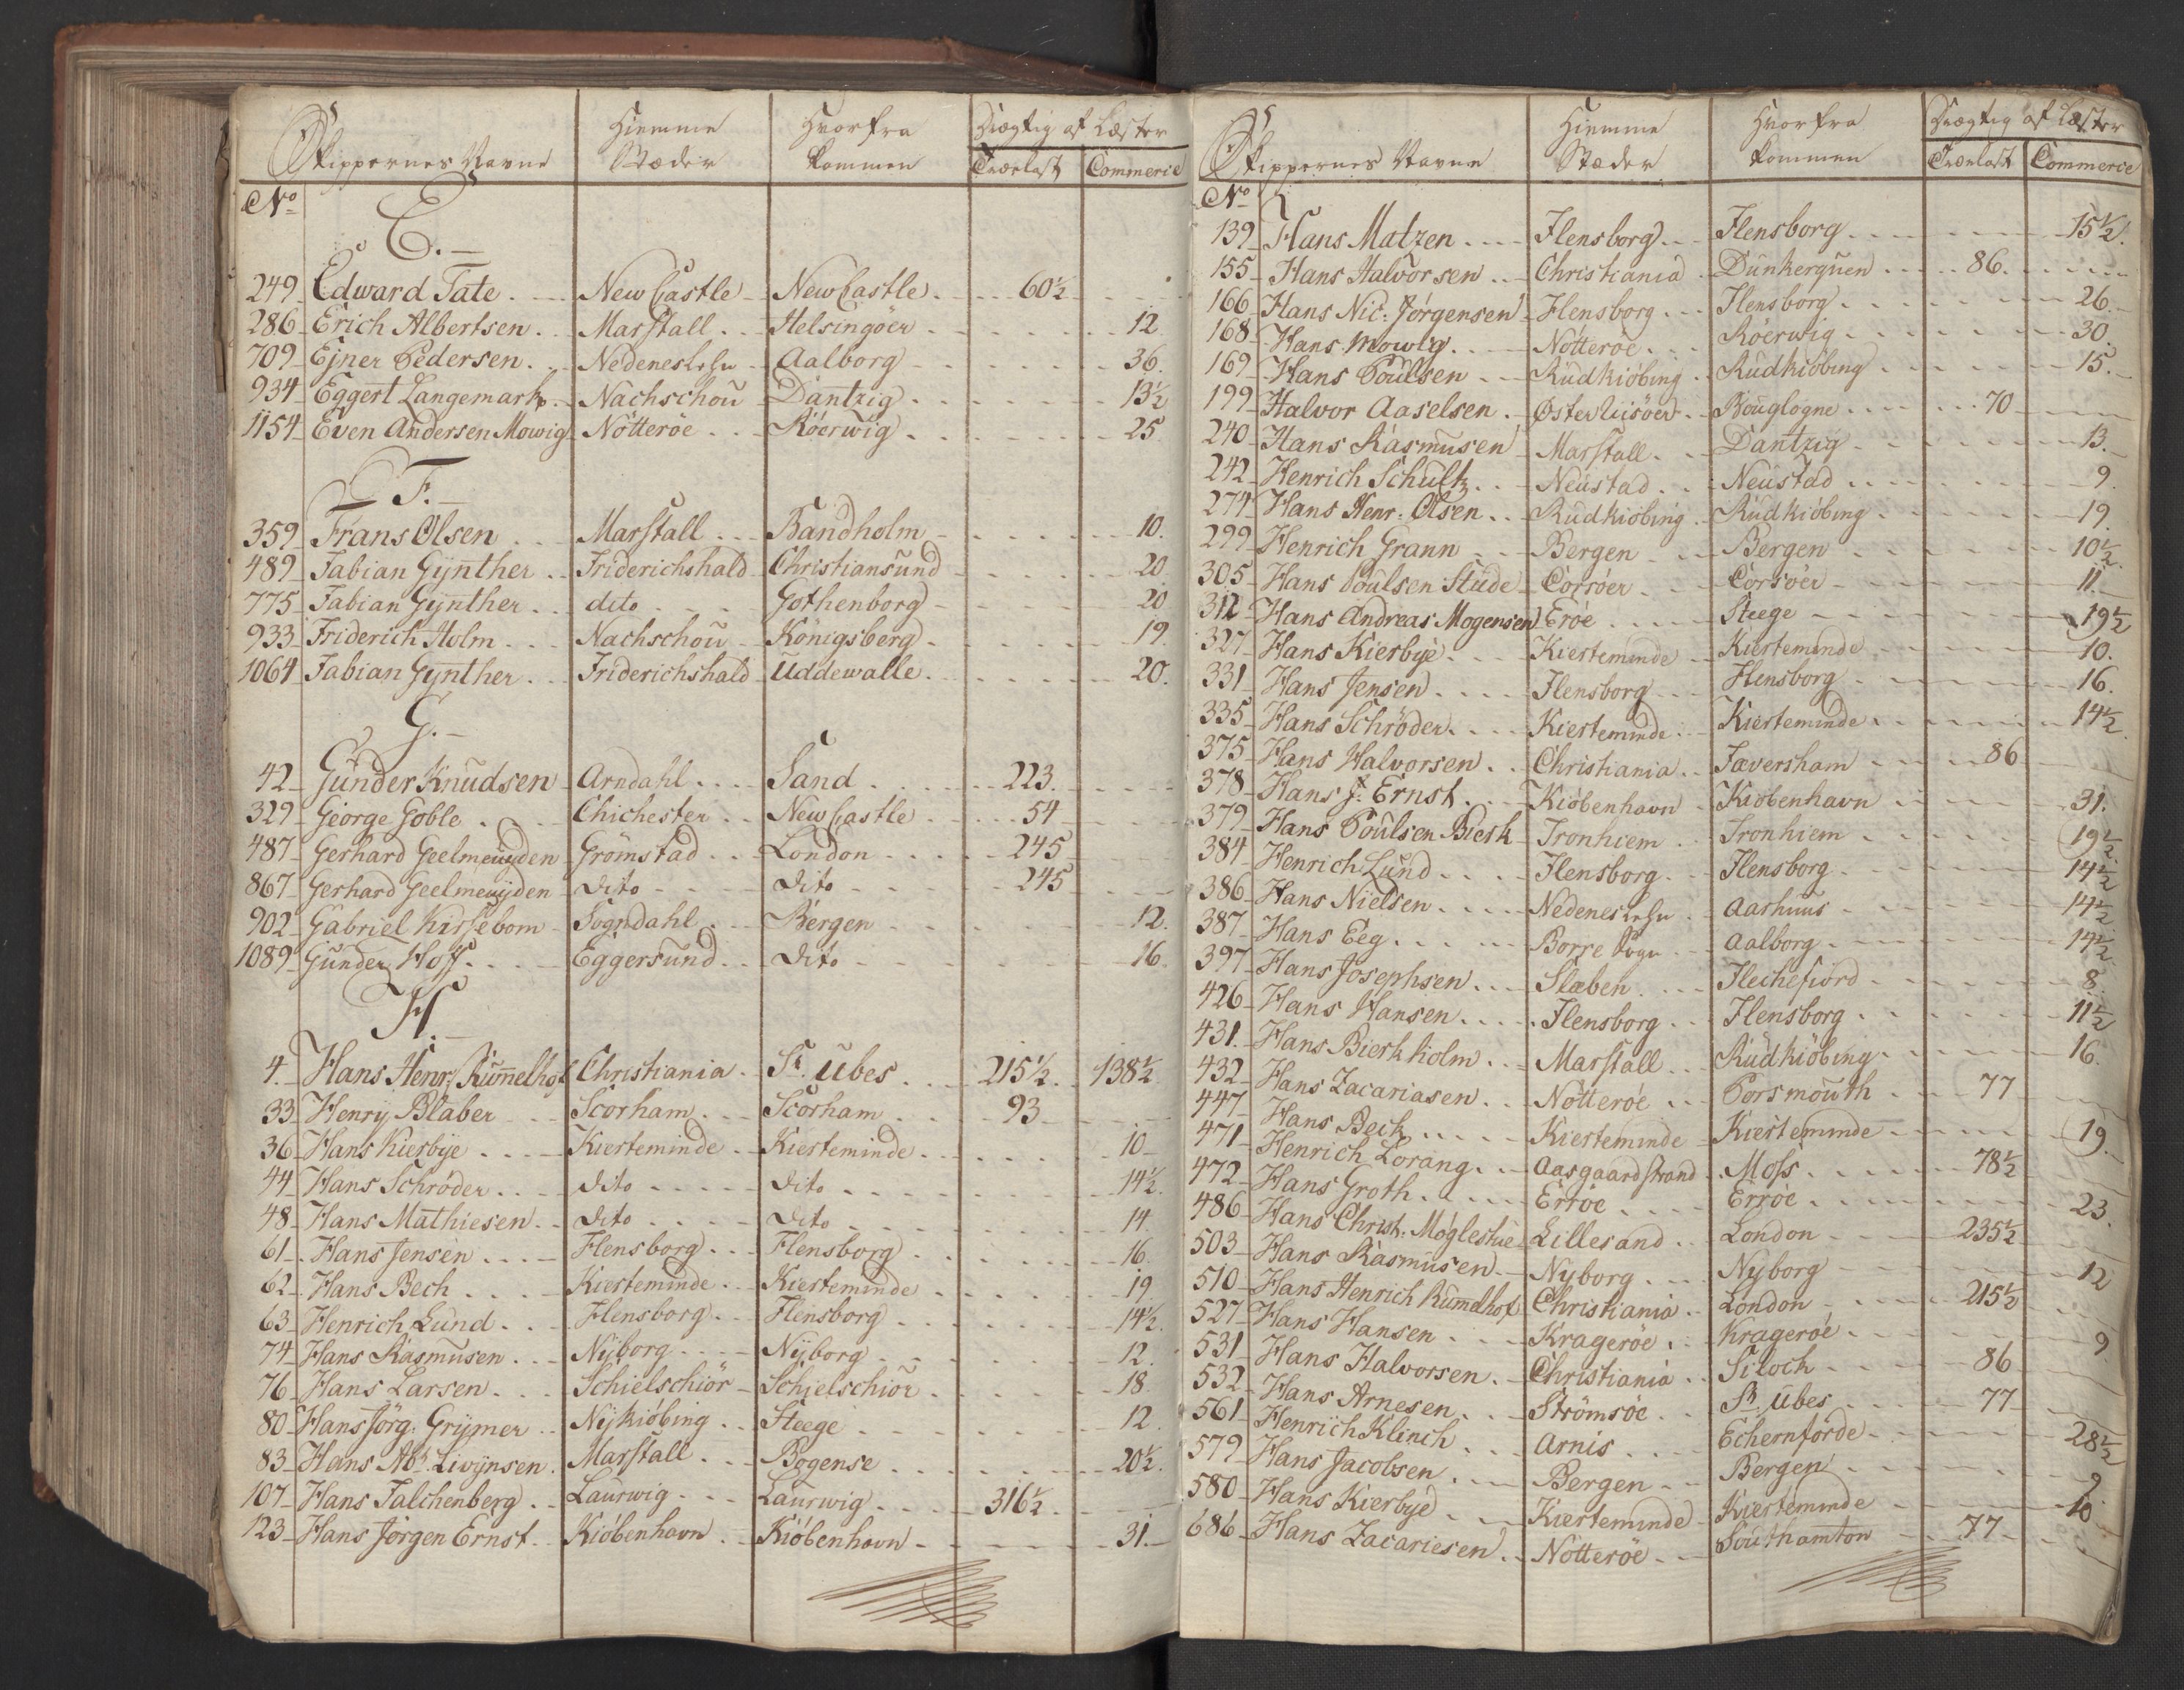 Skippernes Navne Hiemme Stæder Hvorfra kommen Drægtig af Læster Trælast Commerce
No
E.
249 Edward Tate New Castle New Castle 60½
286 Erich Albertsen Marstall Helsingöer 12
709 Ejner Pedersen Nedenes Lehn Aalborg 36
934 Eggert Langemark Nachschou Dantzig 13½
1154 Even Andersen Mowig Nötteröe Röerwig 25
F.
359 Frans Olsen Marstall Bandholm 10
489 Fabian Gÿnther Friderichshald Christiansund 20
775 Fabian Gÿnther dito Gothenborg 20
933 Friderich Holm Nachschou Königsberg 19
1064 Fabian Gÿnther Friderichshald Uddewalle 20
G.
42 Gunder Knudsen Arndahl Sand 223
329 George Goble Chichester New Castle 54
487 Gerhard Geelmeuÿden Grömstad London 245
867 Gerhard Geelmeuÿden dito dito 245
902 Gabriel Kirsebom Sogndahl Bergen 12
1089 Gunder Hoff Eggersund dito 16
H.
4 Hans Henr: Rummelhof Christiania St. Ubes 215½ 138½
33 Henry Blaber Scorham Scorham 93
36 Hans Kierbije Kierteminde Kierteminde 10
44 Hans Schröder dito dito 14½
48 Hans Mathiesen dito dito 14
61 Hans Jensen Flensborg Flensborg 16
62 Hans Bech Kierteminde Kierteminde 19
63 Henrich Lund Flensborg Flensborg 14½
74 Hans Rasmusen Nyborg Nyborg 12
76 Hans Larsen Schielschiör Schielschiör 18
80 Hans Jörg: Grijmer Nijkiöbing Steege 12
83 Hans Abr. Livijnsen Marstall Bogense 20½
107 Hans Falchenberg Laurwig Laurwig 316½
123 Hans Jörgen Ernst Kiöbenhavn Kiöbenhavn 31
Skippernes Navne Hiemme Stæder Hvorfra kommen Drægtig af Læster Trælast Commerce
No
139 Hans Matzen Flensborg Flensborg 15½
155 Hans Halvorsen Christiania Dunkerquen 86
166 Hans Nic: Jörgensen Flensborg Flensborg 26
168 Hans Mowig Nötteröe Röerwig 30
169 Hans Poulsen Rudkiöbing Rudkiöbing 15
199 Halvor Aaselsen Österriisöer Bouglogne 70
240 Hans Rasmusen Marstall Dantzig 13
242 Henrich Schultz Neustad Neustad 9
274 Hans Henr: Olsen Rudkiöbing Rudkiöbing 19
299 Henrich Grann Bergen Bergen 10½
305 Hans Poulsen Stude Corsöer Corsöer 11
312 Hans Andreas Mogensen Eröe Steege 19½
327 Hans Kierbije Kierteminde Kierteminde 10
331 Hans Jensen Flensborg Flensborg 16
335 Hans Schröder Kierteminde Kierteminde 14½
375 Hans Halvorsen Christiania Faversham 86
378 Hans J: Ernst Kiöbenhavn Kiöbenhavn 31
379 Hans Poulsen Bierk Tronhiem Tronhiem 19½
384 Henrich Lund Flensborg Flensborg 14½
386 Hans Nielsen Nedenes Lehn Aarhuus 14½
387 Hans Eeg Borre Sogn Aalborg 14½
397 Hans Josephsen Slæben Flechefiord 8
426 Hans Hansen Flensborg Flensborg 11½
431 Hans Bierkholm Marstall Rudkiöbing 16
432 Hans Zacariasen Nötteröe Porsmouth 77
447 Hans Beck Kierteminde Kierteminde 19
471 Henrich Lorang Aasgaardstrand Moss 78½
472 Hans Groth Erröe Erröe 23
486 Hans Christ: Möglestue Lillesand London 235½
503 Hans Rasmusen Nyborg Nyborg 12
510 Hans Henrich Rummelhof Christiania London 215½
527 Hans Hansen Krageröe Krageröe 9
531 Hans Halvorsen Christiania Siloch 86
532 Hans Arnesen Strömsöe St. Ubes 77
561 Henrich Klinch Arnis Echernförde 28½
579 Hans Jacobsen Bergen Bergen 9
580 Hans Kierbije Kierteminde Kierteminde 10
686 Hans Zacariesen Nötteröe Southamton 77